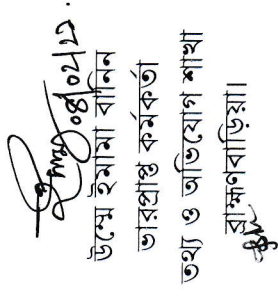 ০৪/০২/২
উম্মে ইমামা বানিন
ভারপ্রাপ্ত কর্মকর্তা
তথ্য ও অভিযোগ শাখা
ব্রাহ্মণবাড়িয়া।